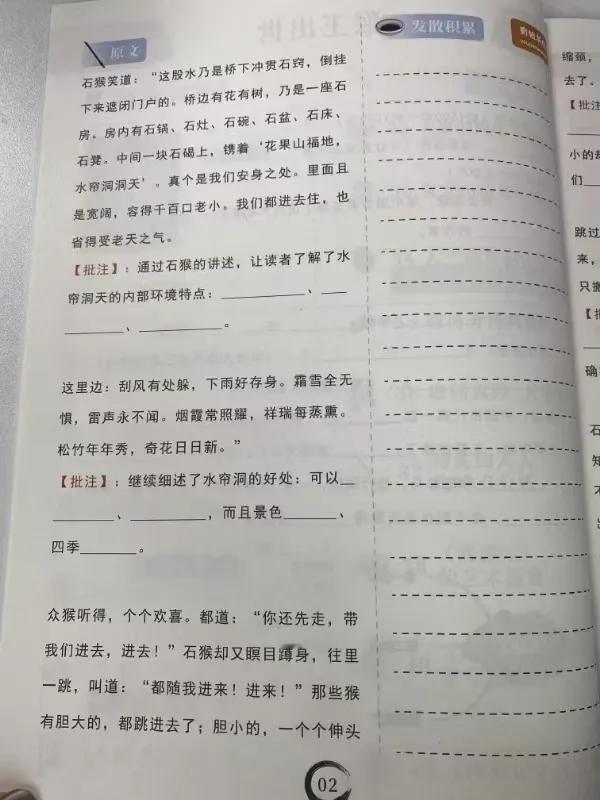 原文
石猴笑道：“这股水乃是桥下冲贯石窍，倒挂
下来遮闭门户的。桥边有花有树，乃是一座石
房。房内有石锅、石灶、石碗、石盆、石床、
石凳。中间一块石碣上，镌着‘花果山福地，
水帘洞洞天’。真个是我们安身之处。里面且
是宽阔，容得千百口老小。我们都进去住，也
省得受老天之气。
【批注】：通过石猴的讲述，让读者了解了水
帘洞天的内部环境特点：__________、__
________、__________。
这里边：刮风有处躲，下雨好存身。霜雪全无
惧，雷声永不闻。烟霞常照耀，祥瑞每蒸熏。
松竹年年秀，奇花日日新。”
【批注】：继续细述了水帘洞的好处：可以__
________、__________，而且景色______、
四季______。
众猴听得，个个欢喜。都道：“你还先走，带
我们进去，进去！”石猴却又瞑目蹲身，往里
一跳，叫道：“都随我进来！进来！”那些猴
有胆大的，都跳进去了；胆小的，一个个伸头
02
发散积累
缩颈，
去了。
【批注
小的却
们
跳过
来，
只搬
【批
确
石
知
不
出